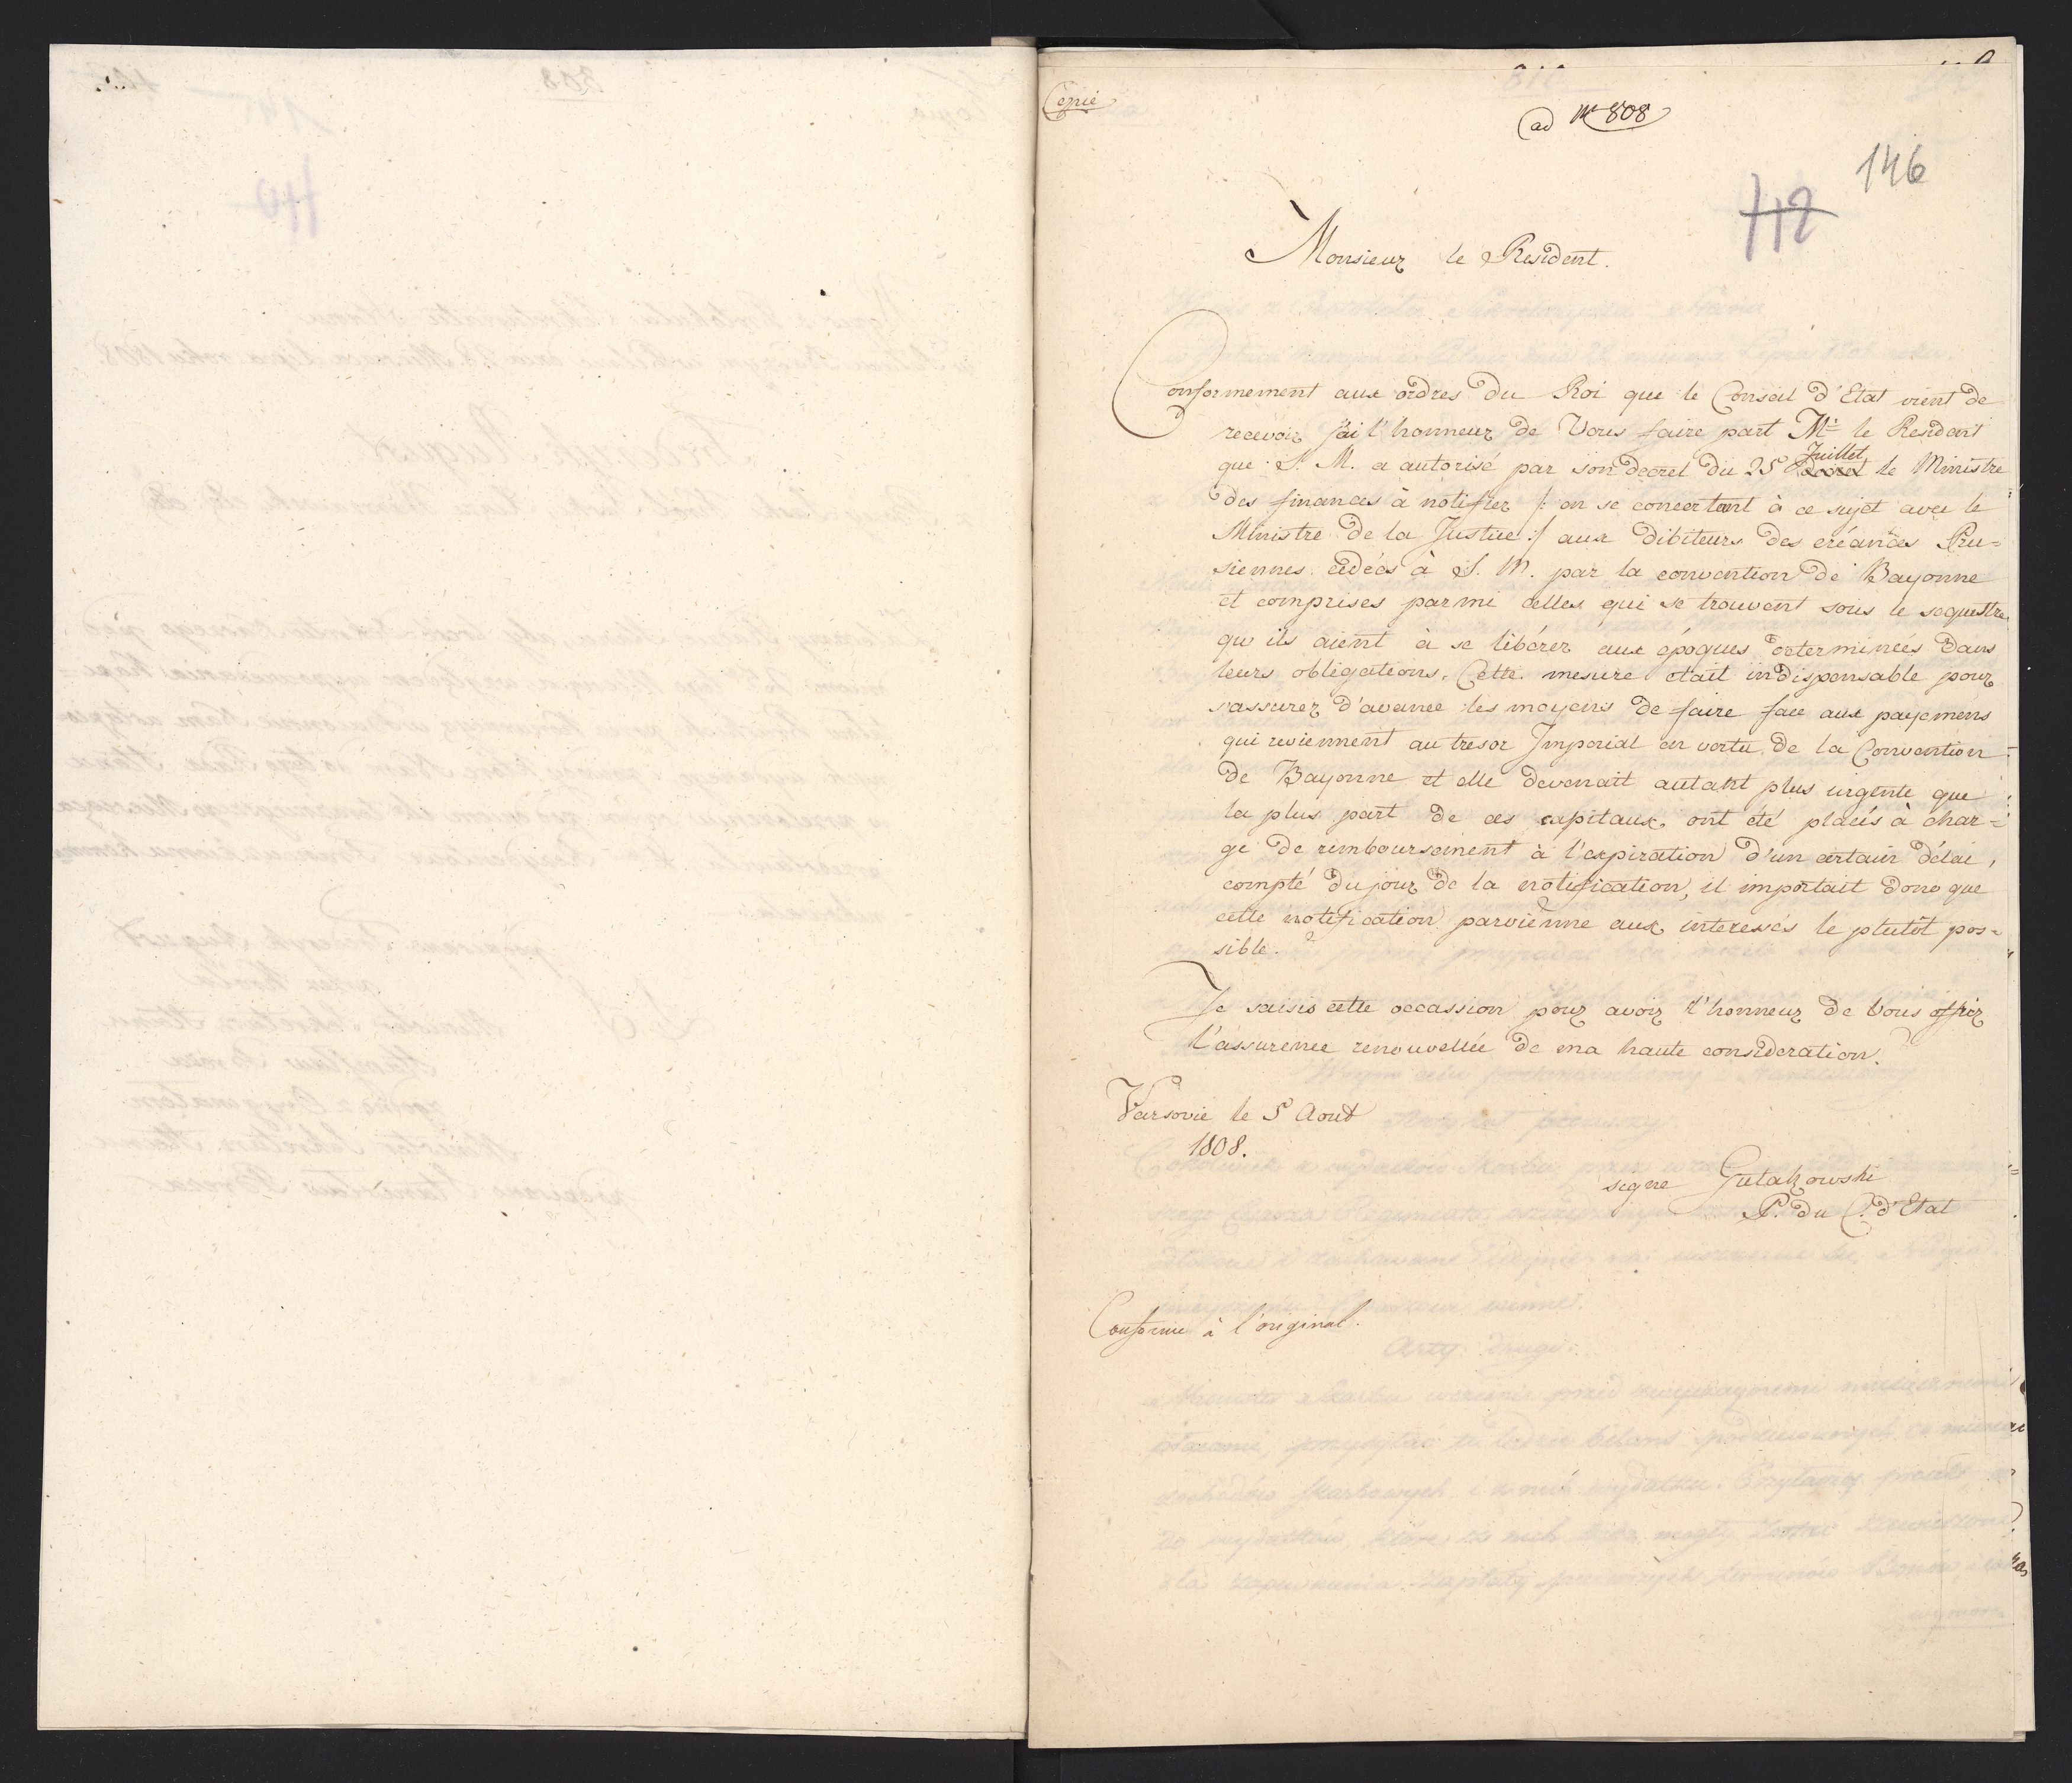 Copie
ad Nr 808
146
112
Monsieur le Resident.
Conformement aux ordres du Roi que le Conseil d'Etat vient de
recevoir j'ai l'honneur de Vous faire part Mr le Resident
que S. M. a autorisé par son decret du 25 Juillet le Ministre
des finances à notifier /: en se concertant à ce sujet avec le
Ministre de la Justice :/ aux dibiteurs des créances Prus=
siennes cedées à S. M. par la convention de Bayonne
et comprises parmi celles qui se trouvent sous le sequestre
qu'ils aient à se libérer aux époques determinées dans
leurs obligations. Cette mesure etait indispensable pour
s'assurer d'avance les moyens de faire face aux payemens
qui reviennent au tresor Imperial en vertu de la Convention
de Bayonne et elle devenait autant plus urgente que
la plus part de ces capitaux ont été placés à char=
ge de remboursement à l'expiration d'un certain délai,
compté du jour de la notification, il importait donc que
cette notification parvienne aux interessés le plutôt pos=
sible.
Je saisis cette occassion pour avoir l'honneur de Vous offrir
l'assurence renouvellée de ma haute consideration.
Varsovie le 5 Aout
1808.
signe Gutakowski
P. du C. d'Etat
Conforme à l'original.